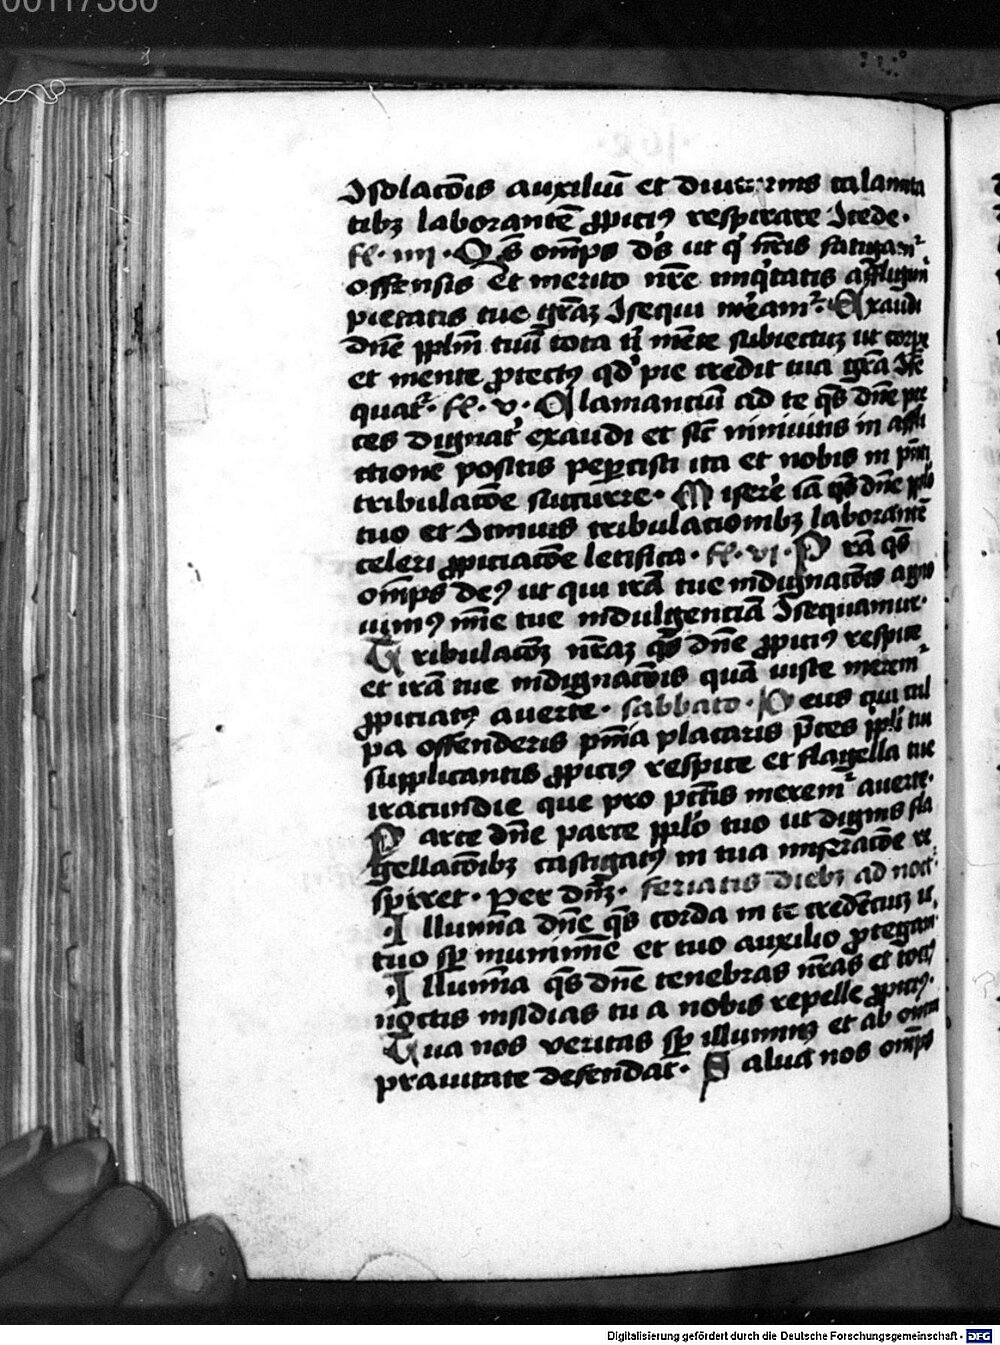 00117380
Ɔsolacōis auxiliū et diuersis calamita
tibꝫ laborantē ꝓpiciꝰ respirare Ɔcede .
fe. iiii . Qs̄ omīps ds̄ ut q nr̄is fatigamr
offensis et merito nr̄e iniq̇tatis affligimr
pietatis tue grā̄ꝫ Ɔsequi mereamr . Exaudi
dn̄e pplm̄ tuū tota ti mēte subiectuꝫ ut corpe
et mente ꝓtectꝰ qd pie credit tua gr̄a Ɔse
quatr . fe. v . Clamanciū ad te qs̄ dn̄e pre
ces dignatr exaudi et sic niniuitis in affli
ctione positis peꝑcisti ita et nobis in pn̄ti
tribulacōe succurre . Miserē iā qs̄ dn̄e pplō
tuo et Ɔtinuis tribulacionibꝫ laborantē
celeri ꝓpiciacōe letifica . fe. vi . Irā qs̄
omīps deꝰ ut qui irā tue indignacōis agno
uimꝰ mīe tue indulgenciā Ɔsequamur .
Tribulacōꝫ nrāꝫ qs̄ dn̄e ꝓpiciꝰ respice
et irā tue indignacōis quā iuste meremr
ꝓpiciatꝰ auerte . sabbato . Deus qui cul
pa offenderis pn̄ia placaris p̄ces ppli tui
supplicantis ꝓpiciꝰ respice et flagella tue
iracundie que pro pctīs meremr auerte .
Parce dn̄e parce pplō tuo ut dignis fla
gellacōibꝫ castigatꝰ in tua miseracōe re
spiret . Per dn̄ꝫ . feriatis diebꝫ ad noct
Illumīa dn̄e qs̄ corda in te credēciuꝫ ut
tuo sp̄ munimīe et tuo auxilio ꝓtegantr
Illumīa qs̄ dn̄e tenebras nr̄as et tociꝰ
noctis insidias tu a nobis repelle ꝓpiciꝰ .
Tua nos veritas sp̄ illuminꝫ et ab omni
prauitate defendat . Salua nos omīps
Digitalisierung gefördert durch die Deutsche Forschungsgemeinschaft - DFG